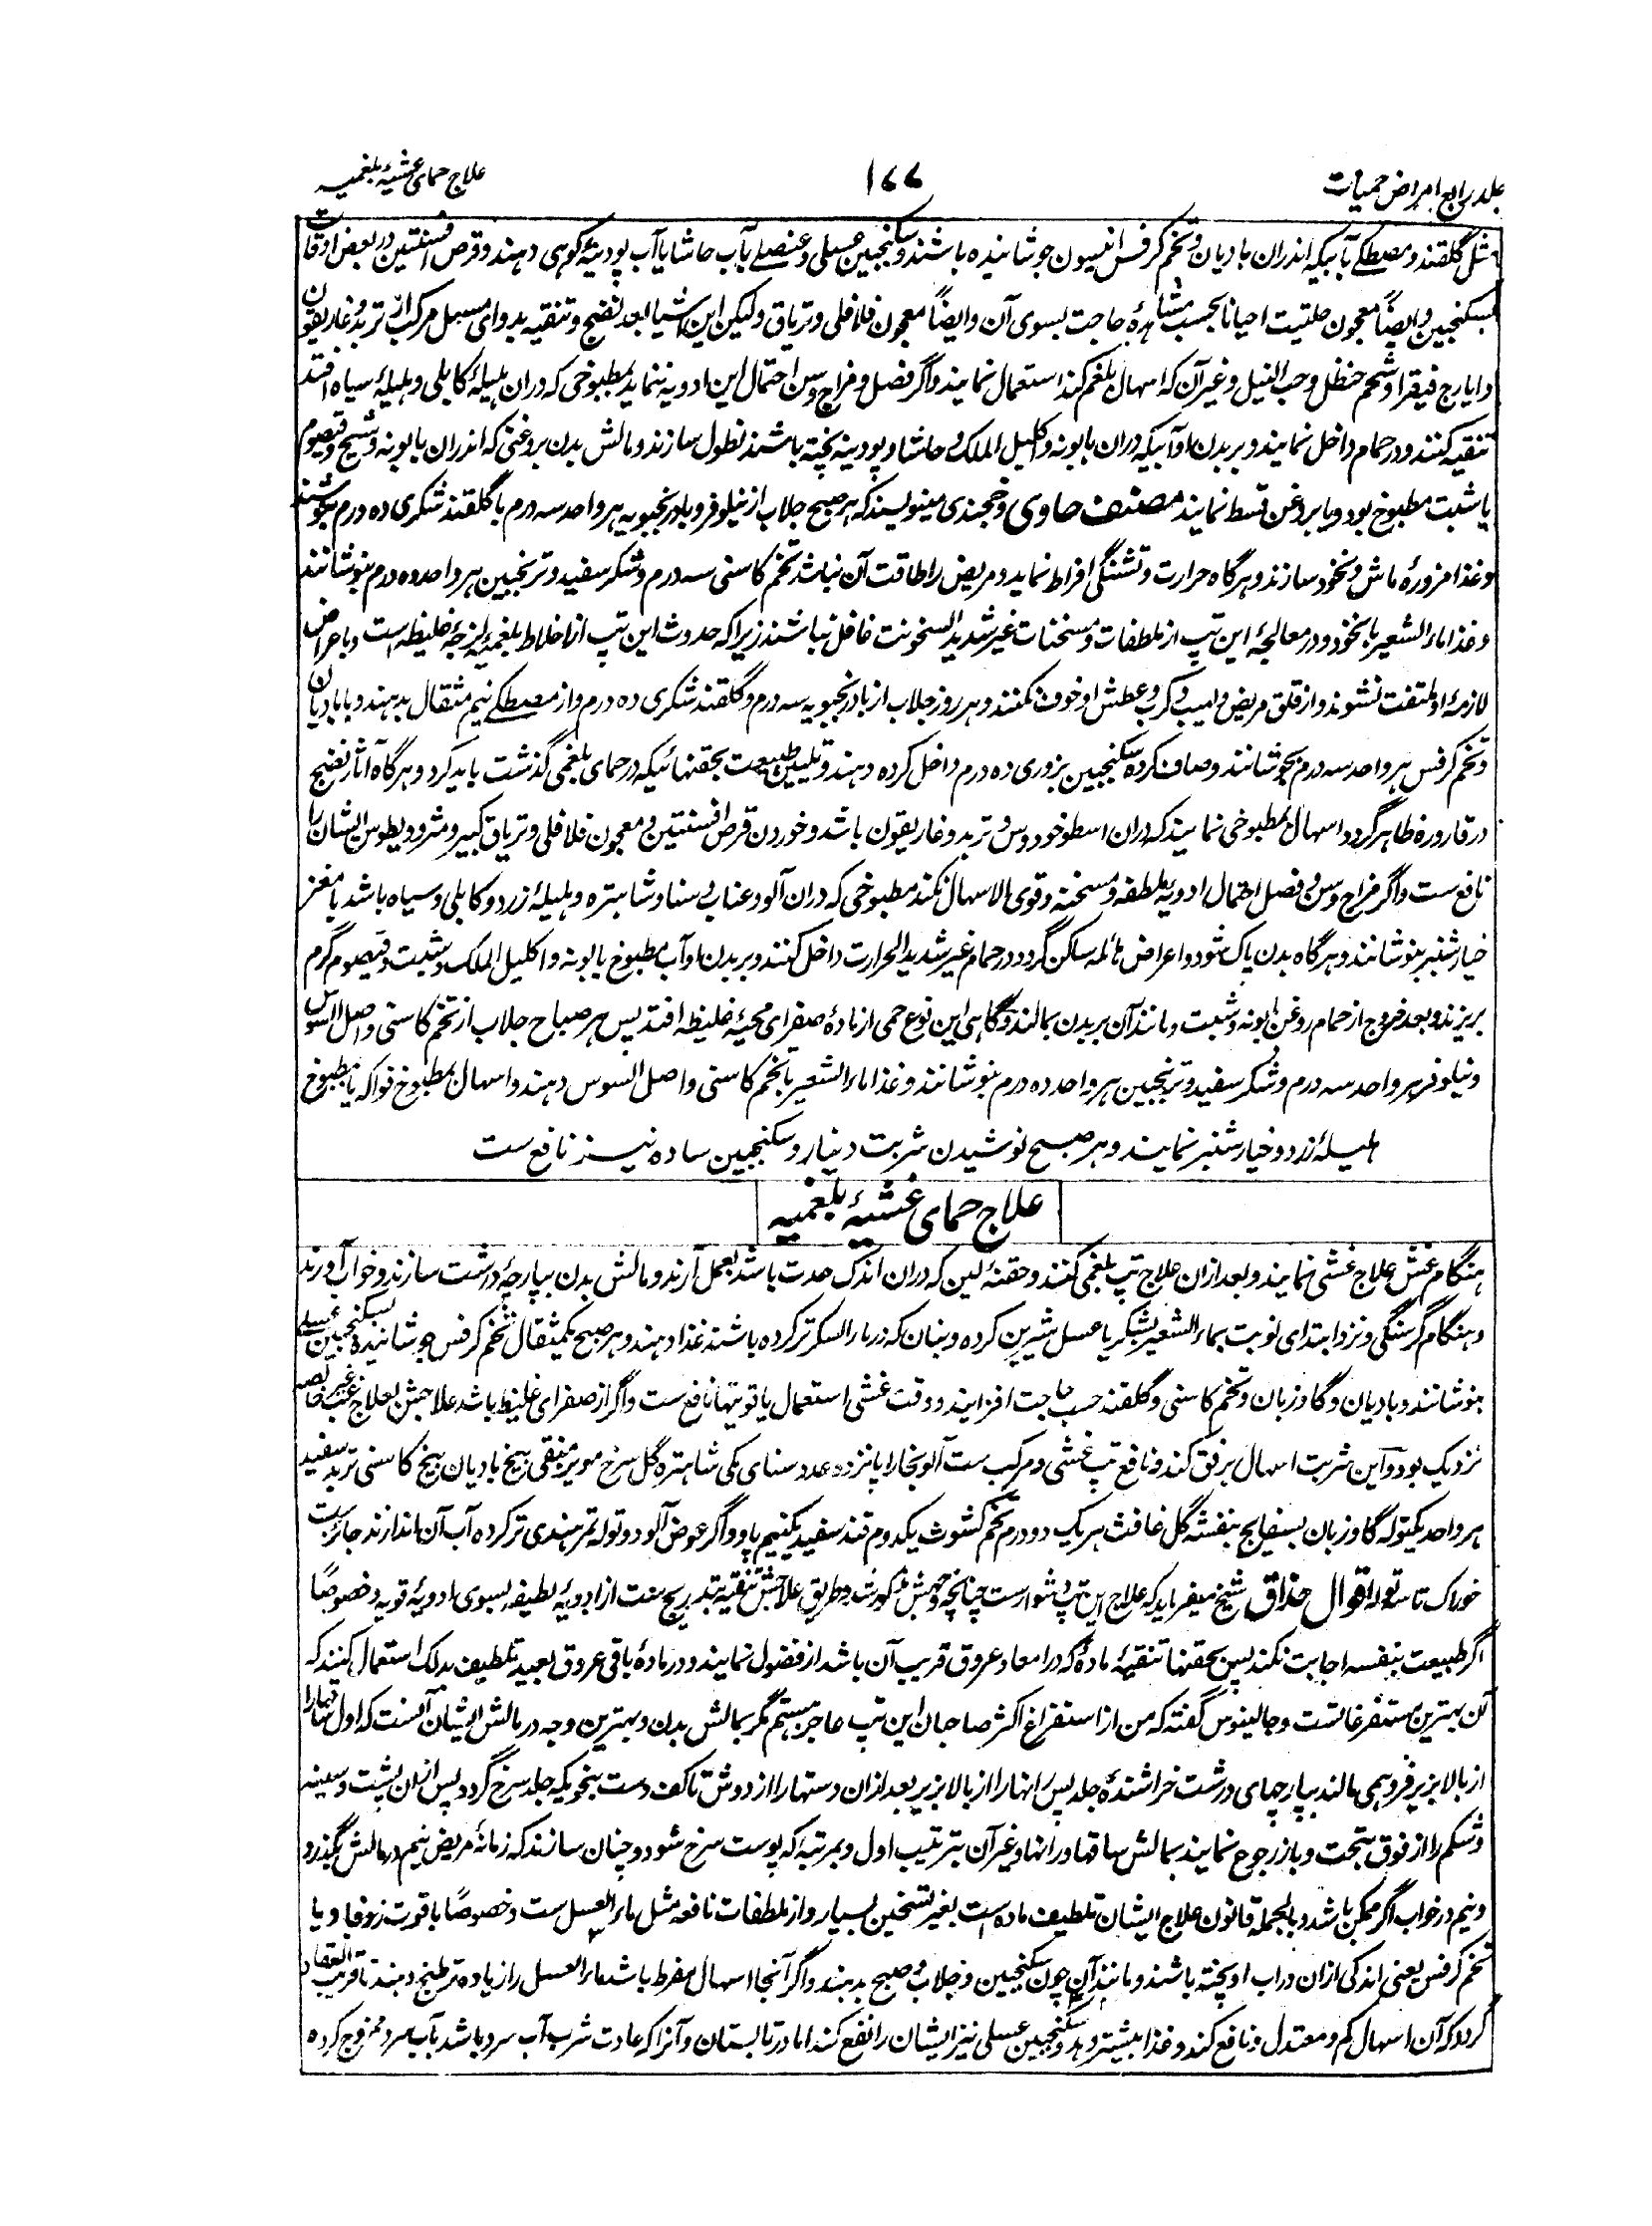 جلد رابع امراض حمیات
۱۷۷
علاج حمای غشیۀ بلغمیه
مثل گلقند و مصطکے بآبیکه اندران بادیان و تخم کرفس انیسون جوشانیده باشند و سکنجبین عسلی و عنصلے بآب حاشا یا آب پودینۀ کوهی دهند و قرص افسنتین در بعض اوقات
بسکنجبین و ایضاً معجون حلتیت احیانا بحسب مشاهدۀ حاجت بسوی آن و ایضاً معجون فلافلی و تریاق ولیکن این اشیا بعد نضج و تنقیه بدوای مسهل مرکب از تربد و غاریقون
و ایارج فیقرا و شحم حنظل و حب النیل و غیر آن که اسهال بلغم کند استعمال نمایند و اگر فصل و مزاج و سن احتمال این ادویه ننماید بمطبوخی که دران هلیلۀ کابلی و هلیلۀ سیاه افتد
تنقیه کنند و در حمام داخل نمایند و بر بدن او آبیکه دران بابونه و اکلیل الملک و حاشا و پودینه پخته باشند نطول سازند و مالش بدن بروغنی که اندران بابونه و شیح و قیصوم
یا شبت مطبوخ بود و یا بروغن قسط نمایند مصنف حاوی و خجندی مینویسند که هر صبح جلاب از نیلوفر و بادرنجبویه هر واحد سه درم با گلقند شکری ده درم بنوشند
و غذا مزورۀ ماش و نخود سازند و هرگاه حرارت و تشنگی افراط نماید و مریض را طاقت آن نباشد تخم کاسنی سه درم و شکر سفید و ترنجبین هر واحد ده درم بنوشانند
و غذا ماءالشعیر با نخود و در معالجۀ این تپ از ملطفات و مسخنات غیر شدید السخونت غافل نباشند زیرا که حدوث این تپ از اخلاط بلغمیۀ لزجۀ غلیظه است و باعراض
لازمۀ او ملتفت نشوند و از قلق مریض و لهیب و کرب و عطش او خوف نکنند و هر روز جلاب از بادرنجبویه سه درم و گلقند شکری ده درم و از مصطکے نیم مثقال بدهند و یا بادیان
و تخم کرفس هر واحد سه درم بجوشانند و صاف کرده سکنجبین بزوری ده درم داخل کرده دهند و تلیین طبیعت بحقنهائیکه در حمای بلغمی گذشت باید کرد و هرگاه آثار نضج
در قاروره ظاهر گردد اسهال بمطبوخی نمایند که دران اسطوخودوس و تربد و غاریقون باشد و خوردن قرص افسنتین و معجون فلافلی و تریاق کبیر و مثرودیطوس ایشان را
نافع ست و اگر مزاج و سن و فصل احتمال ادویه ملطفه و مسخنه و قوی الاسهال نکند مطبوخی که دران آلو و عناب و سنا و شاهتره و هلیلۀ زرد و کابلی و سیاه باشد با مغز
خیارشنبر بنوشانند و هرگاه بدن پاک شود و اعراض هائله ساکن گردد در حمام غیر شدید الحرارت داخل کنند و بر بدن او آب مطبوخ بابونه و اکلیل الملک و شبت و قیصوم گرم
بریزند و بعد خروج از حمام روغن بابونه و شبت و مانند آن بر بدن بمالند و گاهی این نوع حمی از مادۀ صفرای محیۀ غلیظه افتد پس هر صباح جلاب از تخم کاسنی و اصل السوس
و نیلوفر هر واحد سه درم و شکر سفید و ترنجبین هر واحد ده درم بنوشانند و غذا ماءالشعیر با تخم کاسنی و اصل السوس دهند و اسهال بمطبوخ فواکه یا مطبوخ
هلیلۀ زرد و خیارشنبر نمایند و هر صبح نوشیدن شربت دینار و سکنجبین ساده نیز نافع ست
علاج حمای غشیۀ بلغمیه
هنگام غش علاج غشی نمایند و بعد ازان علاج تپ بلغمی کنند و حقنۀ لین که دران اندک حدت باشد بعمل آرند و مالش بدن بپارچۀ درشت سازند و خواب آورند
و هنگام گرسنگی و نزد ابتدای نوبت بماءالشعیر بشکر یا عسل شیرین کرده و بنان که در ماءالسکر تر کرده باشند غذا دهند و هر صبح یکمثقال تخم کرفس جوشانیده بسکنجبین عسلے
بنوشانند و بادیان و گاوزبان و تخم کاسنی و گلقند حسب حاجت افزایند و وقت غشی استعمال یاقوتیها نافع ست و اگر از صفرای غلیظ باشد علاجش بعلاج غب غیر خالصه
نزدیک بود و آین شربت اسهال برفق کند و نافع تپ غشی و مرکب ست آلو بخارا پانزده عدد سنای مکی شاهتره گل سرخ مویز منقی بیخ بادیان بیخ کاسنی تربد سفید
هر واحد یکتوله گاوزبان بسفایج بنفشه گل غافث هر یک دو درم تخم کشوث یکدرم قند سفید یکنیم پاو و اگر عوض آلو دو توله تمر هندی تر کرده آب آن اندازند جائز ست
خوراک تا سه توله اقوال حذاق شیخ میفرماید که علاج این تپ دشوار ست چنانچه وجهش مذکور شد و طریق علاجش تنقیه بتدریج ست از ادویۀ لطیفه بسوی ادویۀ قویه و خصوصاً
اگر طبیعت بنفسه اجابت نکند پس بحقنها تنقیۀ مادۀ که در امعا و عروق قریب آن باشد از فضول نمایند و در مادۀ باقی عروق بعیده تلطیف بدلک استعمال کنند که
آن بهترین مستفرغاتست و جالینوس گفته که من از استفراغ اکثر صاحبان این تپ عاجز هستم مگر بمالش بدن و بهترین وجه در مالش ایشان آنست که اول ساقها را
از بالا بزیر فروهمی مالند بپارچهای درشت خراشندۀ جلد پس رانها را از بالا بزیر بعد ازان دستها را از دوش تا کف دست بنحویکه جلد سرخ گردد پس ازان پشت و سینه
و شکم را از فوق بتحت و باز رجوع نمایند بمالش ساقها و رانها و غیر آن بترتیب اول و بمرتبۀ که پوست سرخ شود و چنان سازند که زمانۀ مریض نیم در مالش بگذرد
و نیم در خواب اگر ممکن باشد و بالجمله قانون علاج ایشان تلطیف ماده است بغیر تسخین بسیار و از ملطفات نافعه مثل ماءالعسل ست و خصوصاً باقوت زوفا و یا
تخم کرفس یعنی اندکی ازان دراب او پخته باشند و مانند آن چون سکنجبین و جلاب و صبح بدهند و اگر آنجا اسهال مفرط باشد ماءالعسل را زیاده تر طبخ دهند تا قریب انعقاد
گردد که آن اسهال کم و معتدل و نافع کند و غذا بیشتر دهد و سکنجبین عسلی نیز ایشان را نفع کند اما در تابستان و آنرا که عادت شرب آب سرد باشد بآب سرد ممزوج کرده